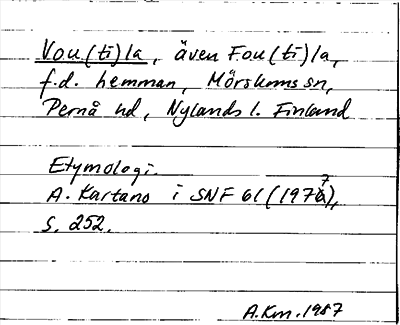 Vou(ti)la, även Fou(ti)la,
f.d. hemman, Mörskoms sn,
Pernå hd, Nylands l. Finland
Etymologi.
A. Kartano i SNF 61 (1977),
s. 252.
A.Km. 1987